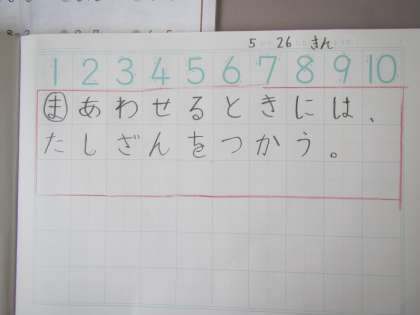 5 26 きん
1 2 3 4 5 6 7 8 9 10
まあわせるときには、
たしざんをつかう。